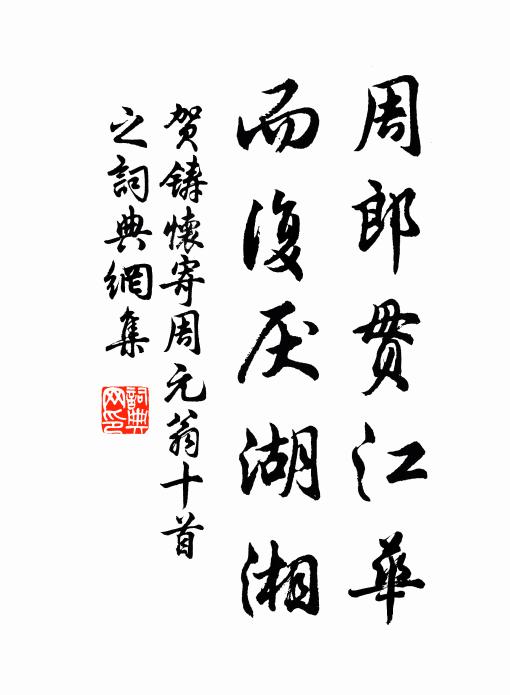 周郎贯江華
而復厌湖湘
贺鑄懷寄周元翁十首
之詞典網集
詞典网印